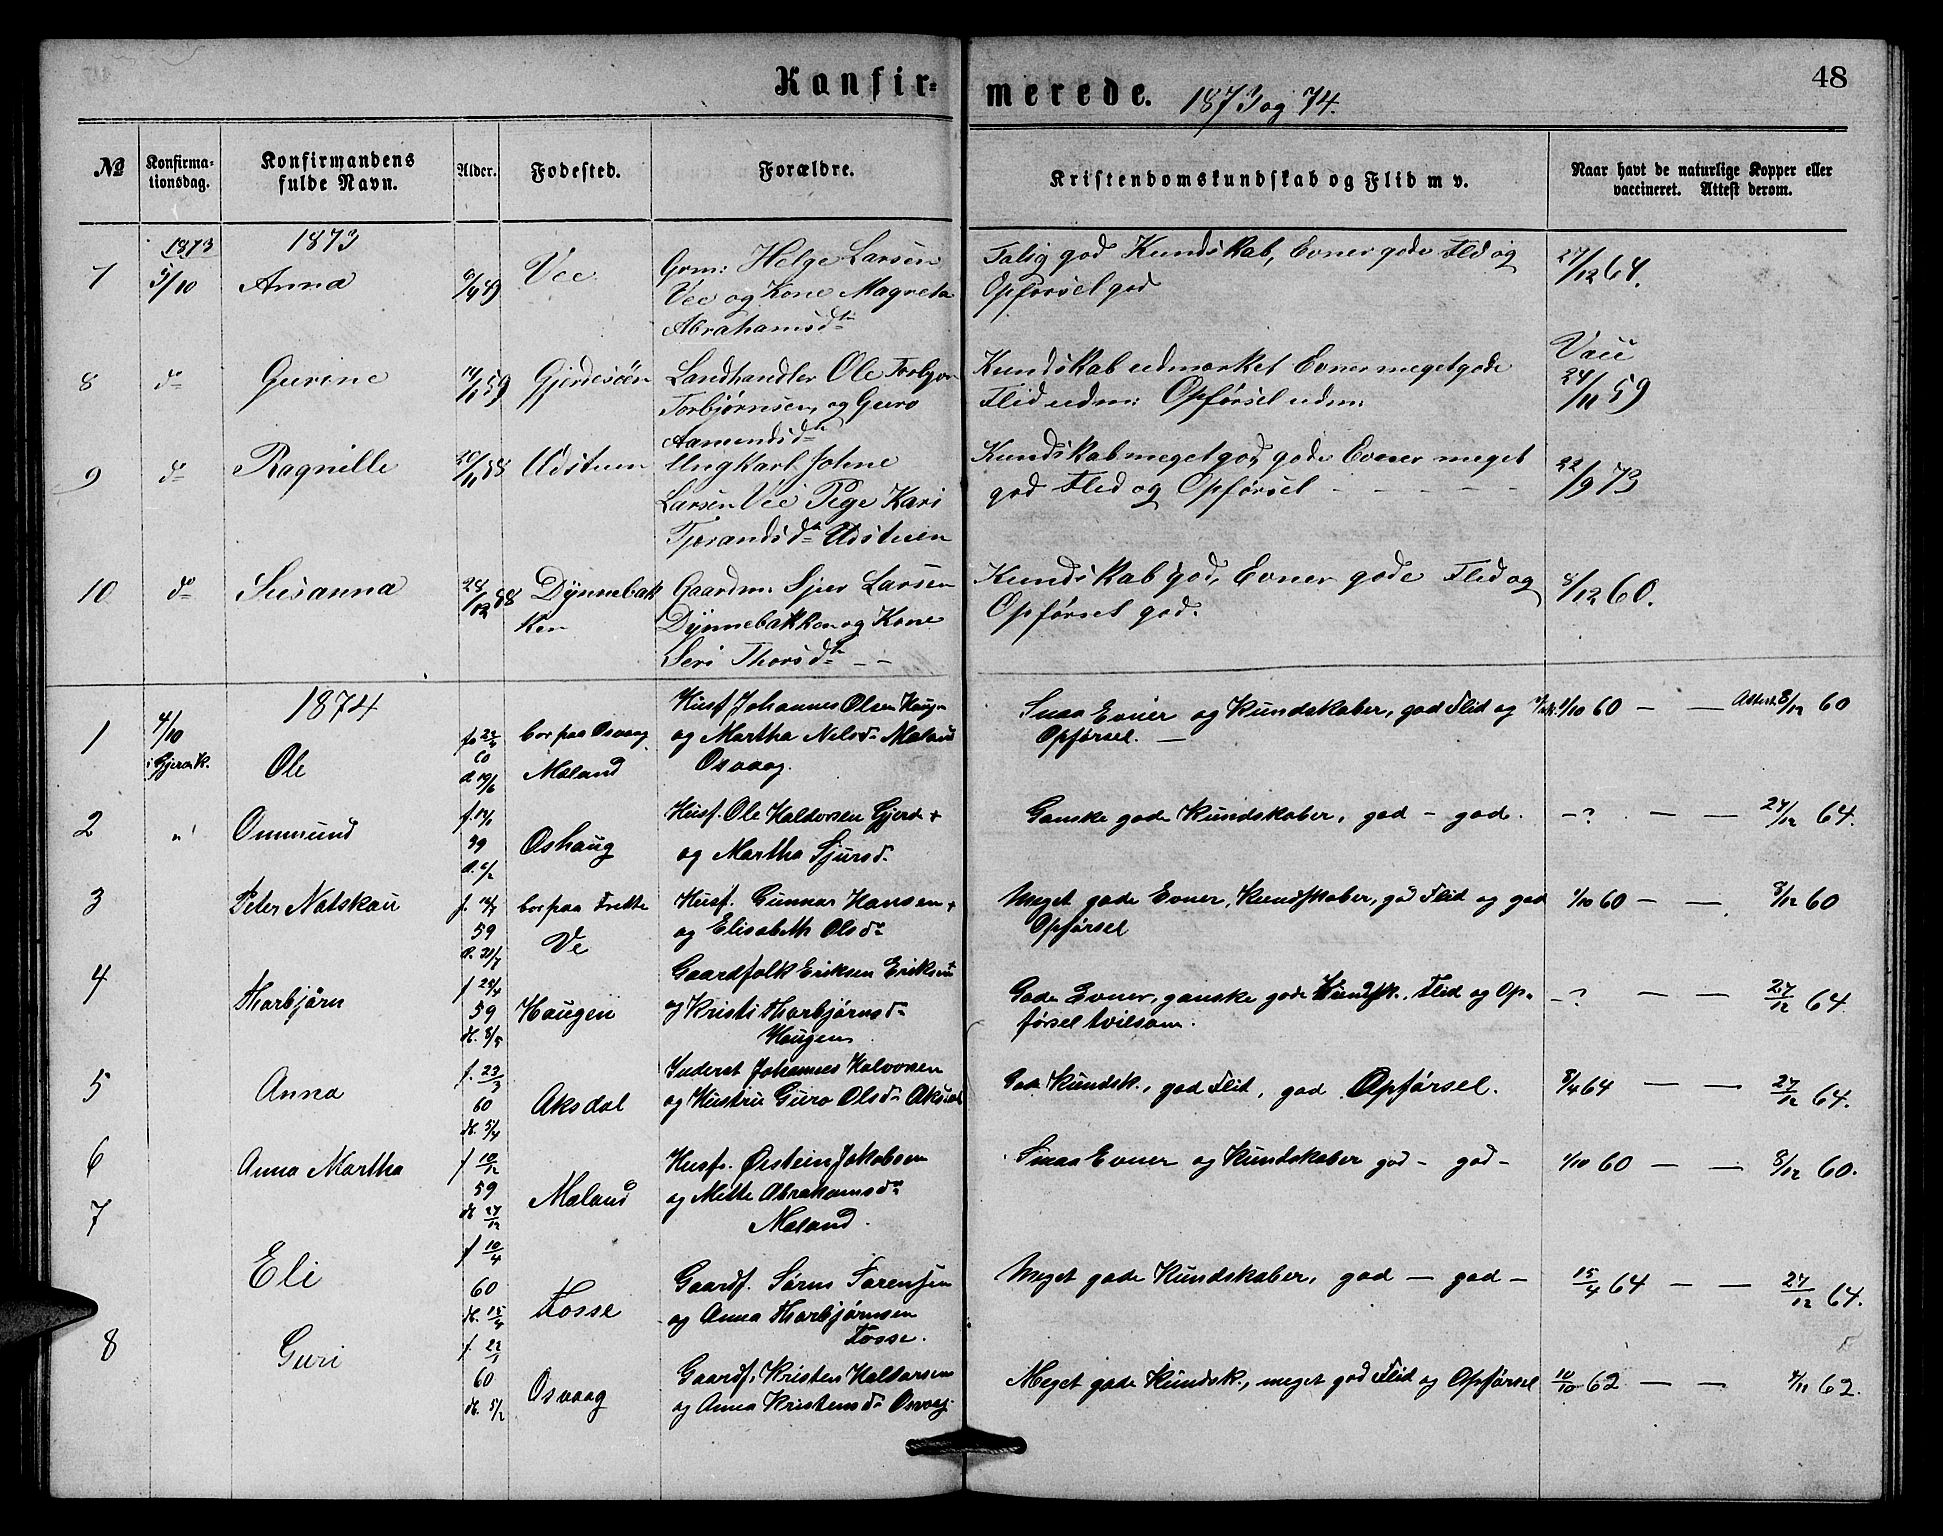 Konfirmerede. 1873 og 74.
48
No
Konfirmationsdag.
Konfirmandens fulde Navn.
Alder.
Fødested.
Forældre.
Kristendomskundskab og Flid m v.
Naar havt de naturlige Kopper eller vaccineret. Attest derom.
1873 1873
7 5/10 Anna Vee Grm: Helge Larsen Talig god Kundskab, Evner gode Flid og 27/12 64.
Vee og Kone Magreta Opførsel god
Abrahamsdtr
8 do Gurine 14/11 59 Gjerdesøen Landhandler Ole Torbjørn Kundskab udmærket Evner meget gode Vaii
Torbjørnsen og Guro Flid udm: Opførsel udm: 24/11 59
Aamundsdtr
9 do Ragnille 20/11 58 Udstuen Ungkarl Johne Kundskab meget god, gode Evner meget 22/9 73
Larsen Vee Pige Kari god Flid og Opførsel - - - - -
Tjerandsdtr Udstuen
10 do Susanna 24/12 58 Dynnebak Gaardm: Sjur Larsen Kundskab god, Evner gode Flid og 8/12 60.
ken Dynnebakken og Kone Opførsel god.
Seri Thorsdtr - -
1874
1 4/10 i Gjerak. Ole bor paa Osvaag Husf Johannes Olsen Haug Smaa Evner og Kundskaber, god Flid og 1/10 60 — — Attest 8/12 60
Mæland og Martha Nilsd. Mæland Opførsel. —
Osvaag.
2 " Ommund 59 Oshaug Husf. Ole Haldorsen Gjerd + Ganske gode Kundskaber, god - god. -? — — 27/12 64.
og Martha Sjursd.
3 Peter Natskau 59 bor paa Frette Husf. Gunnar Hansen + Meget gode Evner, Kundskaber, god Flid og god 1/10 60 — — 8/12 60
Ve og Elisabeth Olsdr Opførsel
4 Thorbjørn 59 Haugen Gaardfolk Eriksen Eriksen Gode Evner, ganske gode Kundsk., Flid og Op- -? — — 27/12 64.
og Kristi Thorbjørnsd. førsel tvilsom.
Haugen
5 Anna f. 23/3 60 d. 5/4 Aksdal Inderst Johannes Halvorsen God Kundsk., god Flid, god Opførsel. 8/4 64 — — 27/12 64.
og Hustru Guro Olsd. Aksdal
6 Anna Martha f 10/12 59 d. 27/12 Mæland Husf. Østein Jakobsen Smaa Evner og Kundskaber god - god - 1/10 60 — — 8/12 60.
og Mette Abrahamsdr
Mæland.
7 Eli f 10/4 60 d. 15/4 Fosse Gaardf. Sørns Sorensen Meget gode Kundskaber, god — god - 15/4 64 — — 27/12 64.
og Anna Thorbjørnsen
Fosse.
8 Guri f 22/1 60 d. 5/2 Osvaag Gaardf. Kristen Haldorsen Meget gode Kundsk., meget god Flid og Opførsel 10/10 62 — — 4/11 62.
og Anna Kristensd. Osvaag